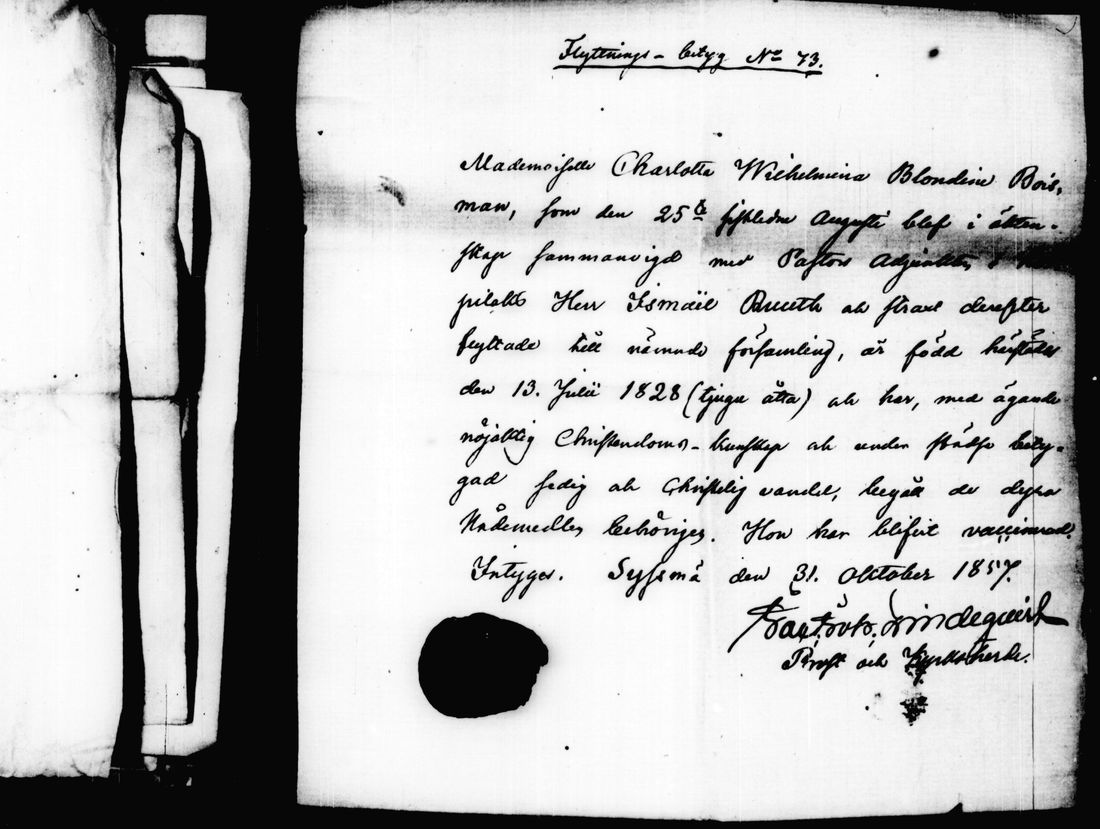 Flyttnings-betyg No 73.
Mademoiselle Charlotta Wilhelmina Blondine Bois-
man, som den 25te sistledne Augusti blef i ökten-
skap sammanvigd med Pastors Adjunkten i
pilaks Herr Ismaël Rueth och straxt derefter
flyttade till nämnde församling, är född härstädes
den 13. Julii 1828 (tjugu åtta) och har, med ägande
nöjaktig Christendoms-kunskap och under städse bety-
gad sedig och Christelig vandel, begått de dyra
Nådemedlen behörigen. Hon har blifvit vaccinerad.
Intygar. Syssmä den 31. Oktober 1857.
Lindequist
Prost och Kyrkoherde.